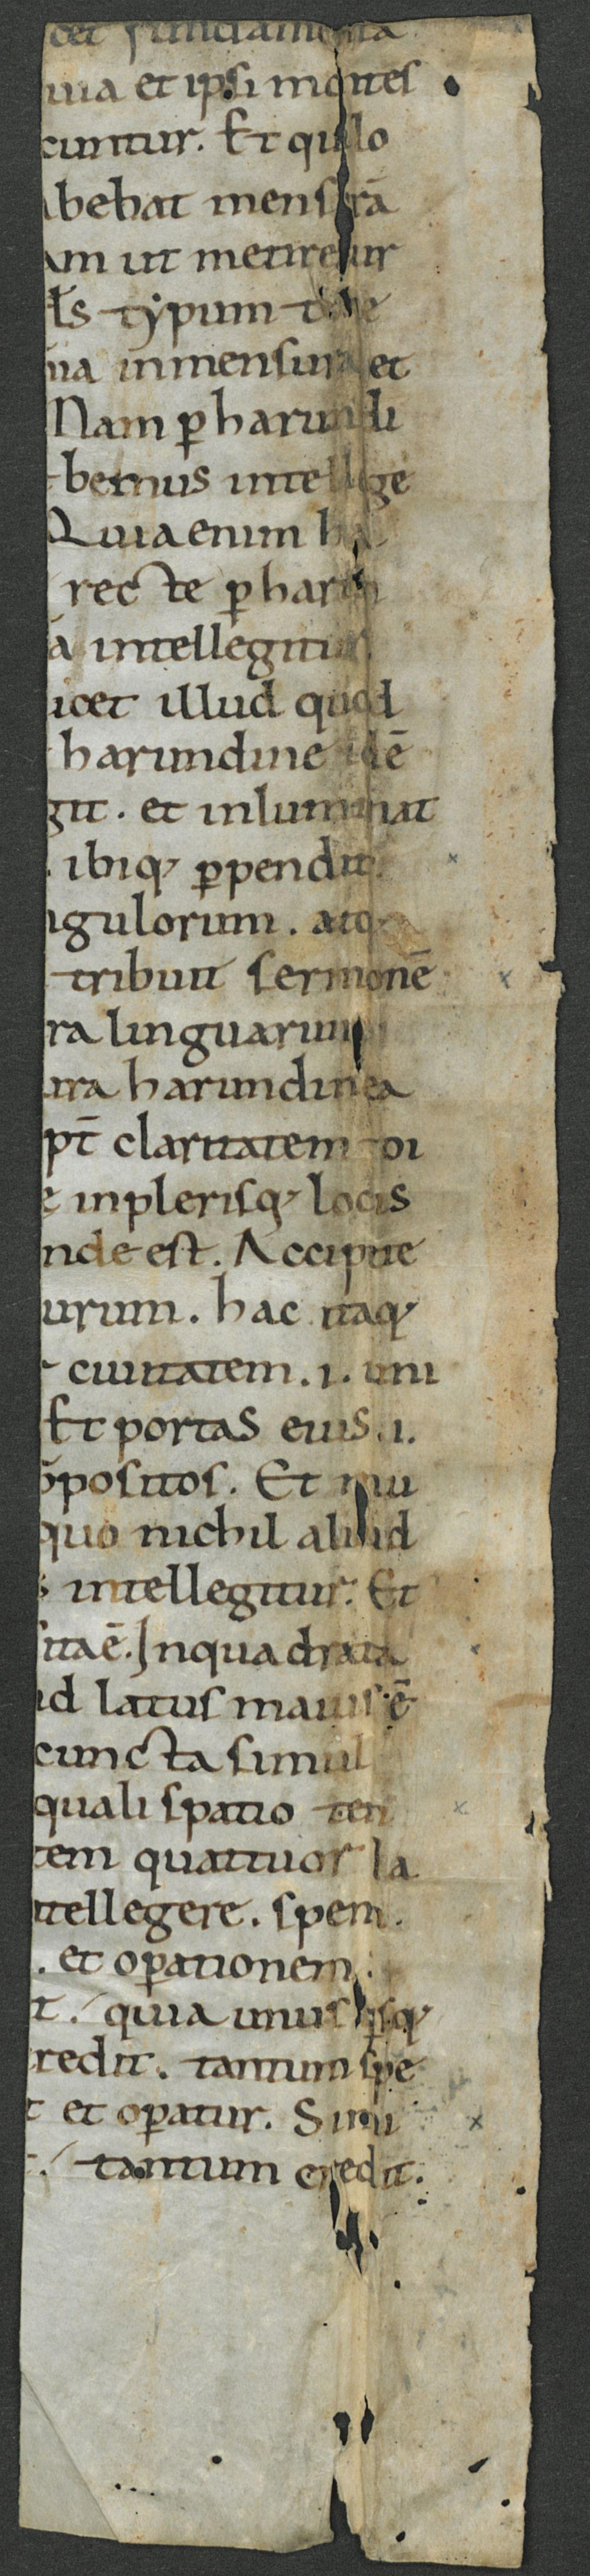 cet fundamenta
uia et ipsi montes
cuntur. Et qui lo
abebat mensurā
am ut metiretur
ƚs typum
ua inmensura et
Nam ꝑ harundi
bemus intellege
Quia enim ha
recte ꝑ harun
ā intellegitur
icet illud quod
harundine idē
git. et inluminat
ibiq; ꝑpendit
gulorum. atq;
tribuit sermonē
ra linguarum
ura harundinea
pt̄ claritatem
inplerisq; locis
nde est. Accipite
urum. hac itaq;
ciuitatem .i. uni
Et portas eius .i.
p̄positos. Et mu
quo nichil aliud
intellegitur. Et
ita ē. Inquadrata
d latus maius ē
cuncta simul
quali spatio ten
tem quattuor la
tellegere. spem.
. et oꝑationem.
t. quia unusquisq;
redit. tantum spe
t et oꝑatur. Simi
. tantum credit.